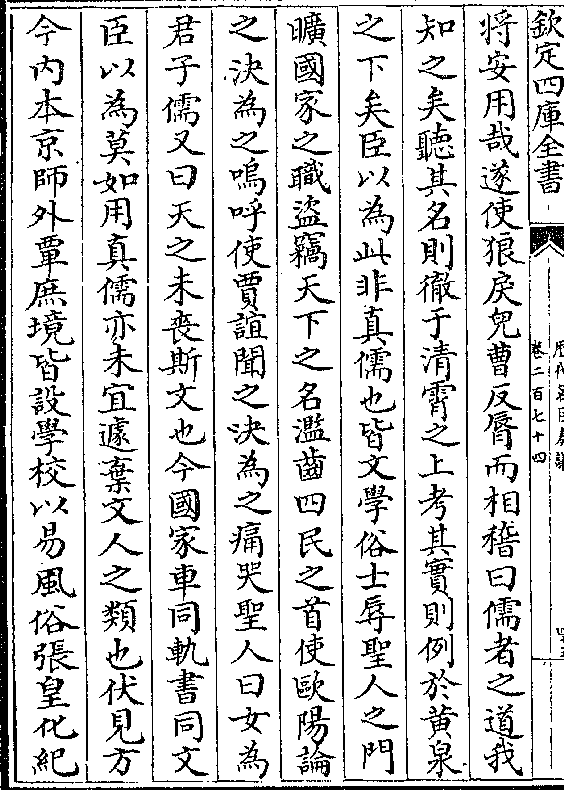 欽定四庫全書
卷二百七十四
將安用哉遂使狠戾兒曹反脣而相稽曰儒者之道我
知之矣聽其名則徹于清霄之上考其實則例於黄泉
之下矣臣以為此非真儒也皆文學俗士辱聖人之門
曠國家之職盗竊天下之名濫齒四民之首使歐陽論
之決為之嗚呼使賈誼聞之決為之痛哭聖人曰女為
君子儒又曰天之未喪斯文也今國家車同軌書同文
臣以為莫如用真儒亦未宜遽棄文人之類也伏見方
今内本京師外覃庶境皆設學校以易風俗張皇化紀